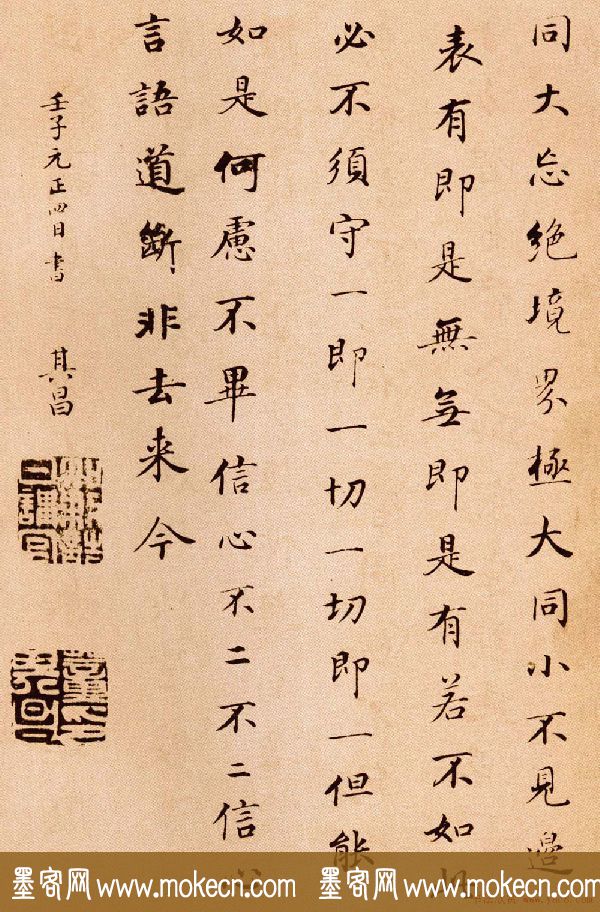 同大忘絶境界極大同小不見邊
表有即是無無即是有若不如
必不須守一即一切一切即一但能
如是何慮不畢信心不二不二信心
言語道斷非去来今
壬子元正四日書 其昌
墨客网 www.mokecn.com 墨客网 www.mokecn.com